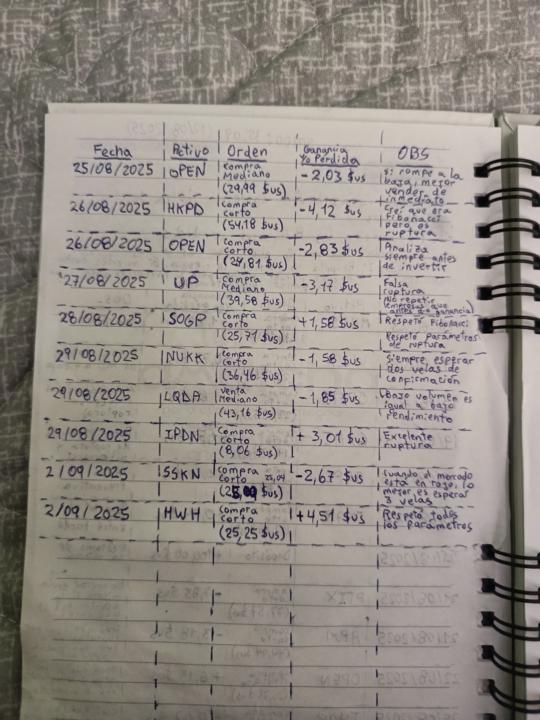 Fecha Activo Orden Ganancia y/o Perdida OBS
25/08/2025 OPEN compra Mediano (29,99 $us) -2,03 $us si rompe a la baja, mejor vender de inmediato
26/08/2025 HKPD compra corto (54,18 $us) -4,12 $us Creí que era Fibonacci pero es ruptura
26/08/2025 OPEN compra corto (24,81 $us) -2,83 $us Analiza siempre antes de invertir
27/08/2025 UP compra Mediano (39,58 $us) -3,17 $us Falsa ruptura (No repetir empresas que antes dio ganancia)
28/08/2025 SOGP compra corto (25,71 $us) +1,58 $us Respeto Fibonacci Respeto parámetros de ruptura
29/08/2025 NUKK compra corto (36,46 $us) -1,58 $us Siempre, esperar dos velas de confirmación
29/08/2025 LQDA venta Mediano (43,16 $us) -1,85 $us Bajo volumen es igual a bajo rendimiento
29/08/2025 IPDN compra corto (8,06 $us) +3,01 $us Excelente ruptura
2/09/2025 SSKN compra corto 25,04 $us) -2,67 $us cuando el mercado está en rojo, lo mejor es esperar 3 velas
2/09/2025 HWH compra corto (25,25 $us) +4,51 $us Respeto todos los parámetros